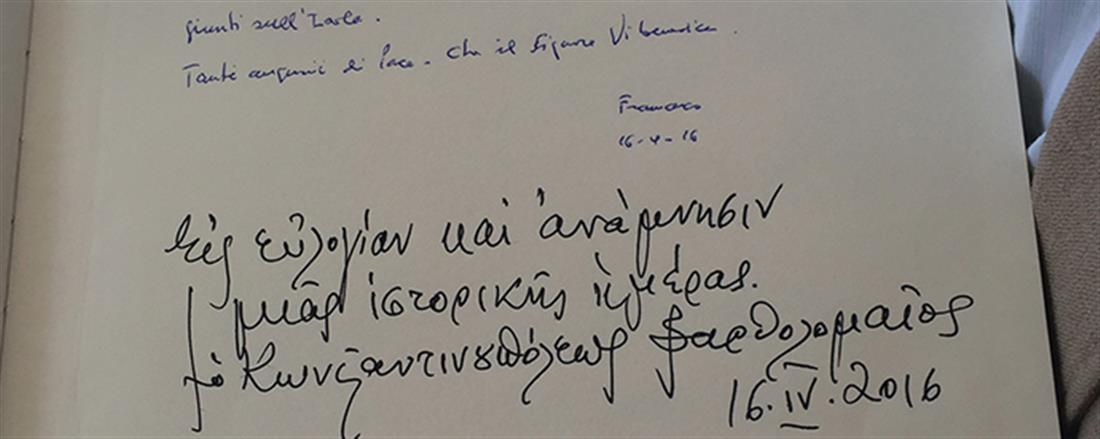 giunti sull'Isola.
Tanti auguri di Pace. Che il Signore Vi benedica.
Francesco
16-4-16
Εἰς εὐλογίαν καί ἀνάμνησιν
μιᾶς ἱστορικῆς ἡμέρας.
ὁ Κωνσταντινουπόλεως Βαρθολομαῖος
16.IV.2016